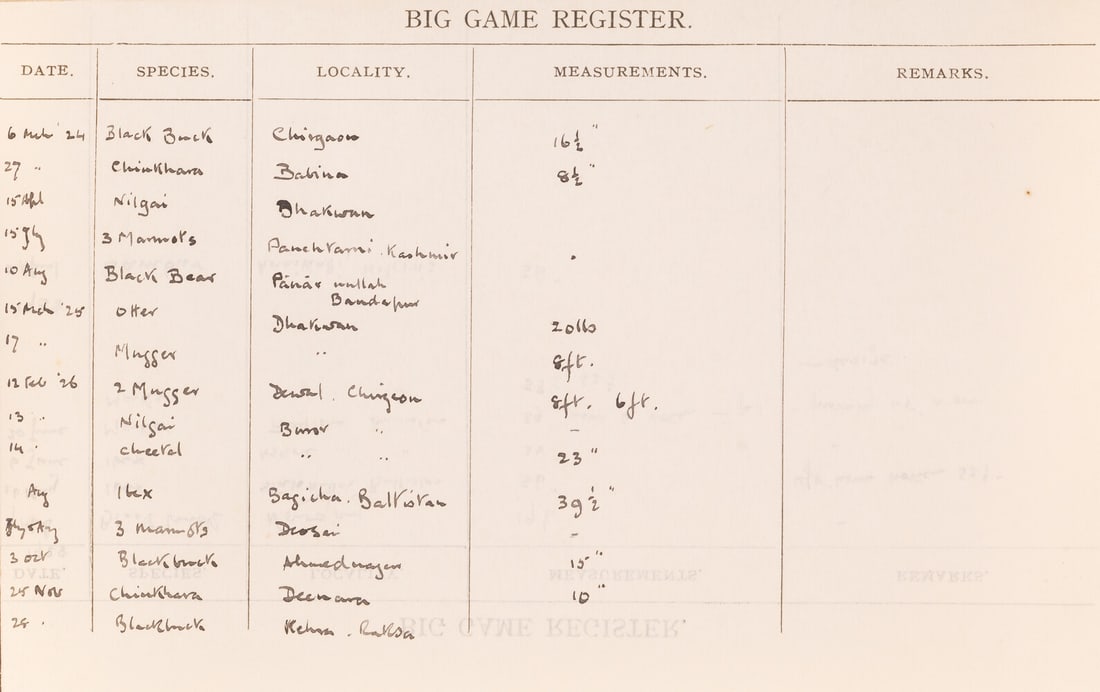 BIG GAME REGISTER.
DATE. SPECIES. LOCALITY. MEASUREMENTS. REMARKS.
6 Mch '24 Black Buck Chirgaon 16½"
27 " Chinkhara Babina 8½"
15 Apl Nilgai Dhakwan
15 Jly 3 Marmots Panchtarni. Kashmir
10 Aug Black Bear Pànàr nullah
Bandapur
15 Mch '25 Otter Dhakwan 20lbs
17 " Mugger " 8ft.
12 Feb '26 2 Mugger Chirgaon 8ft. 6ft.
13 " Nilgai " -
14 " Cheetal " " 23"
Aug Ibex Bagicha. Baltistan 39½"
Jly & Aug 3 Marmots Deosai -
3 Oct Blackbuck Ahmednagar 15"
25 Nov Chinkhara Deenara 10"
28 " Blackbuck Raksa